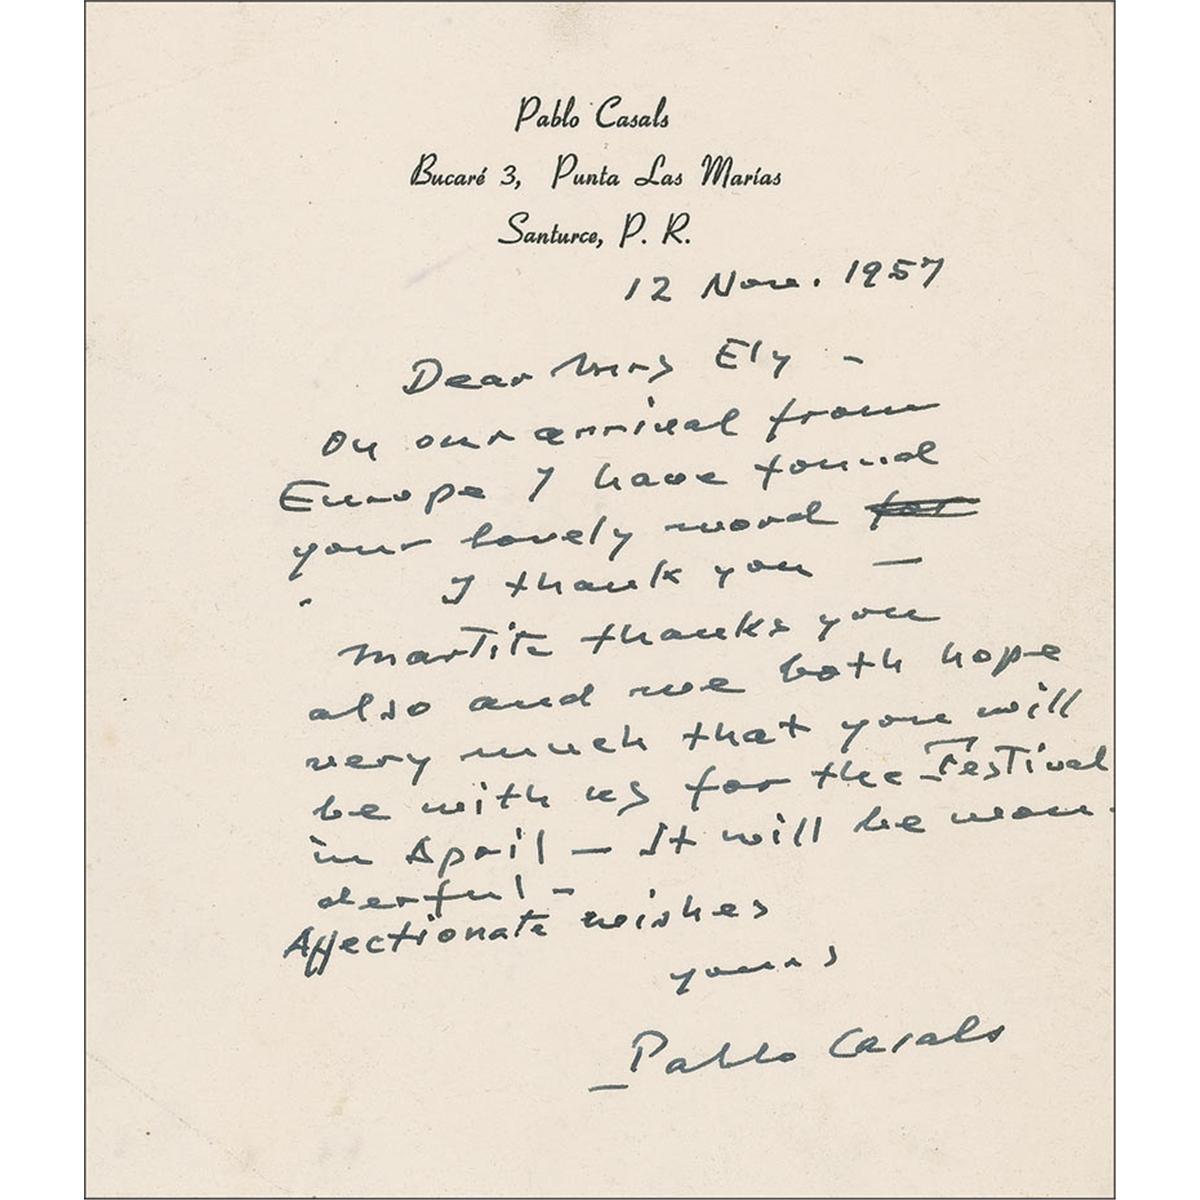 Pablo Casals
Bucaré 3, Punta Las Marías
Santurce, P. R.
12 Nov. 1957
Dear Mrs Ely –
On our arrival from
Europe I have found
your lovely word for
I thank you —
Martita thanks you
also and we both hope
very much that you will
be with us for the Festival
in April – It will be won-
derful –
Affectionate wishes
yours
Pablo Casals